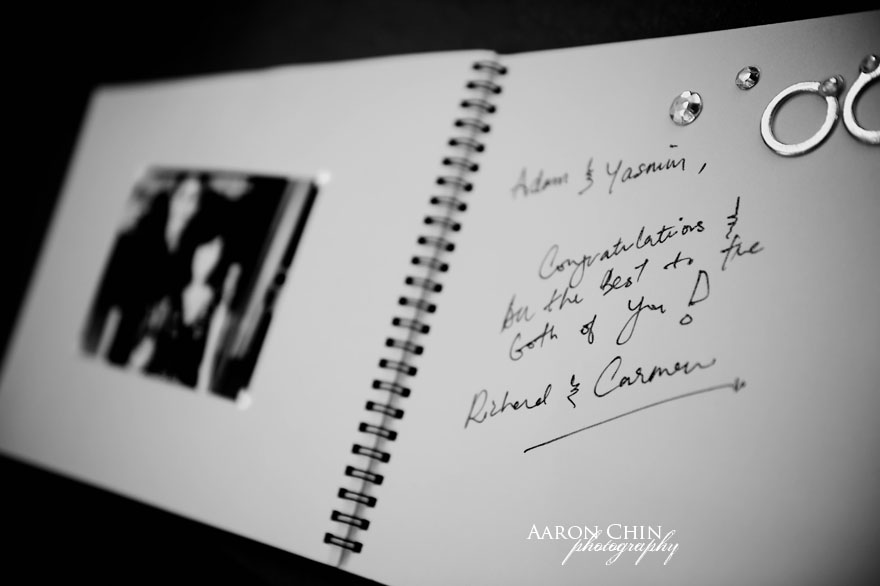 Adam & Yasmin,
Congratulations &
All the Best to the
Both of You!
Richard & Carmen
AARON CHIN
photography